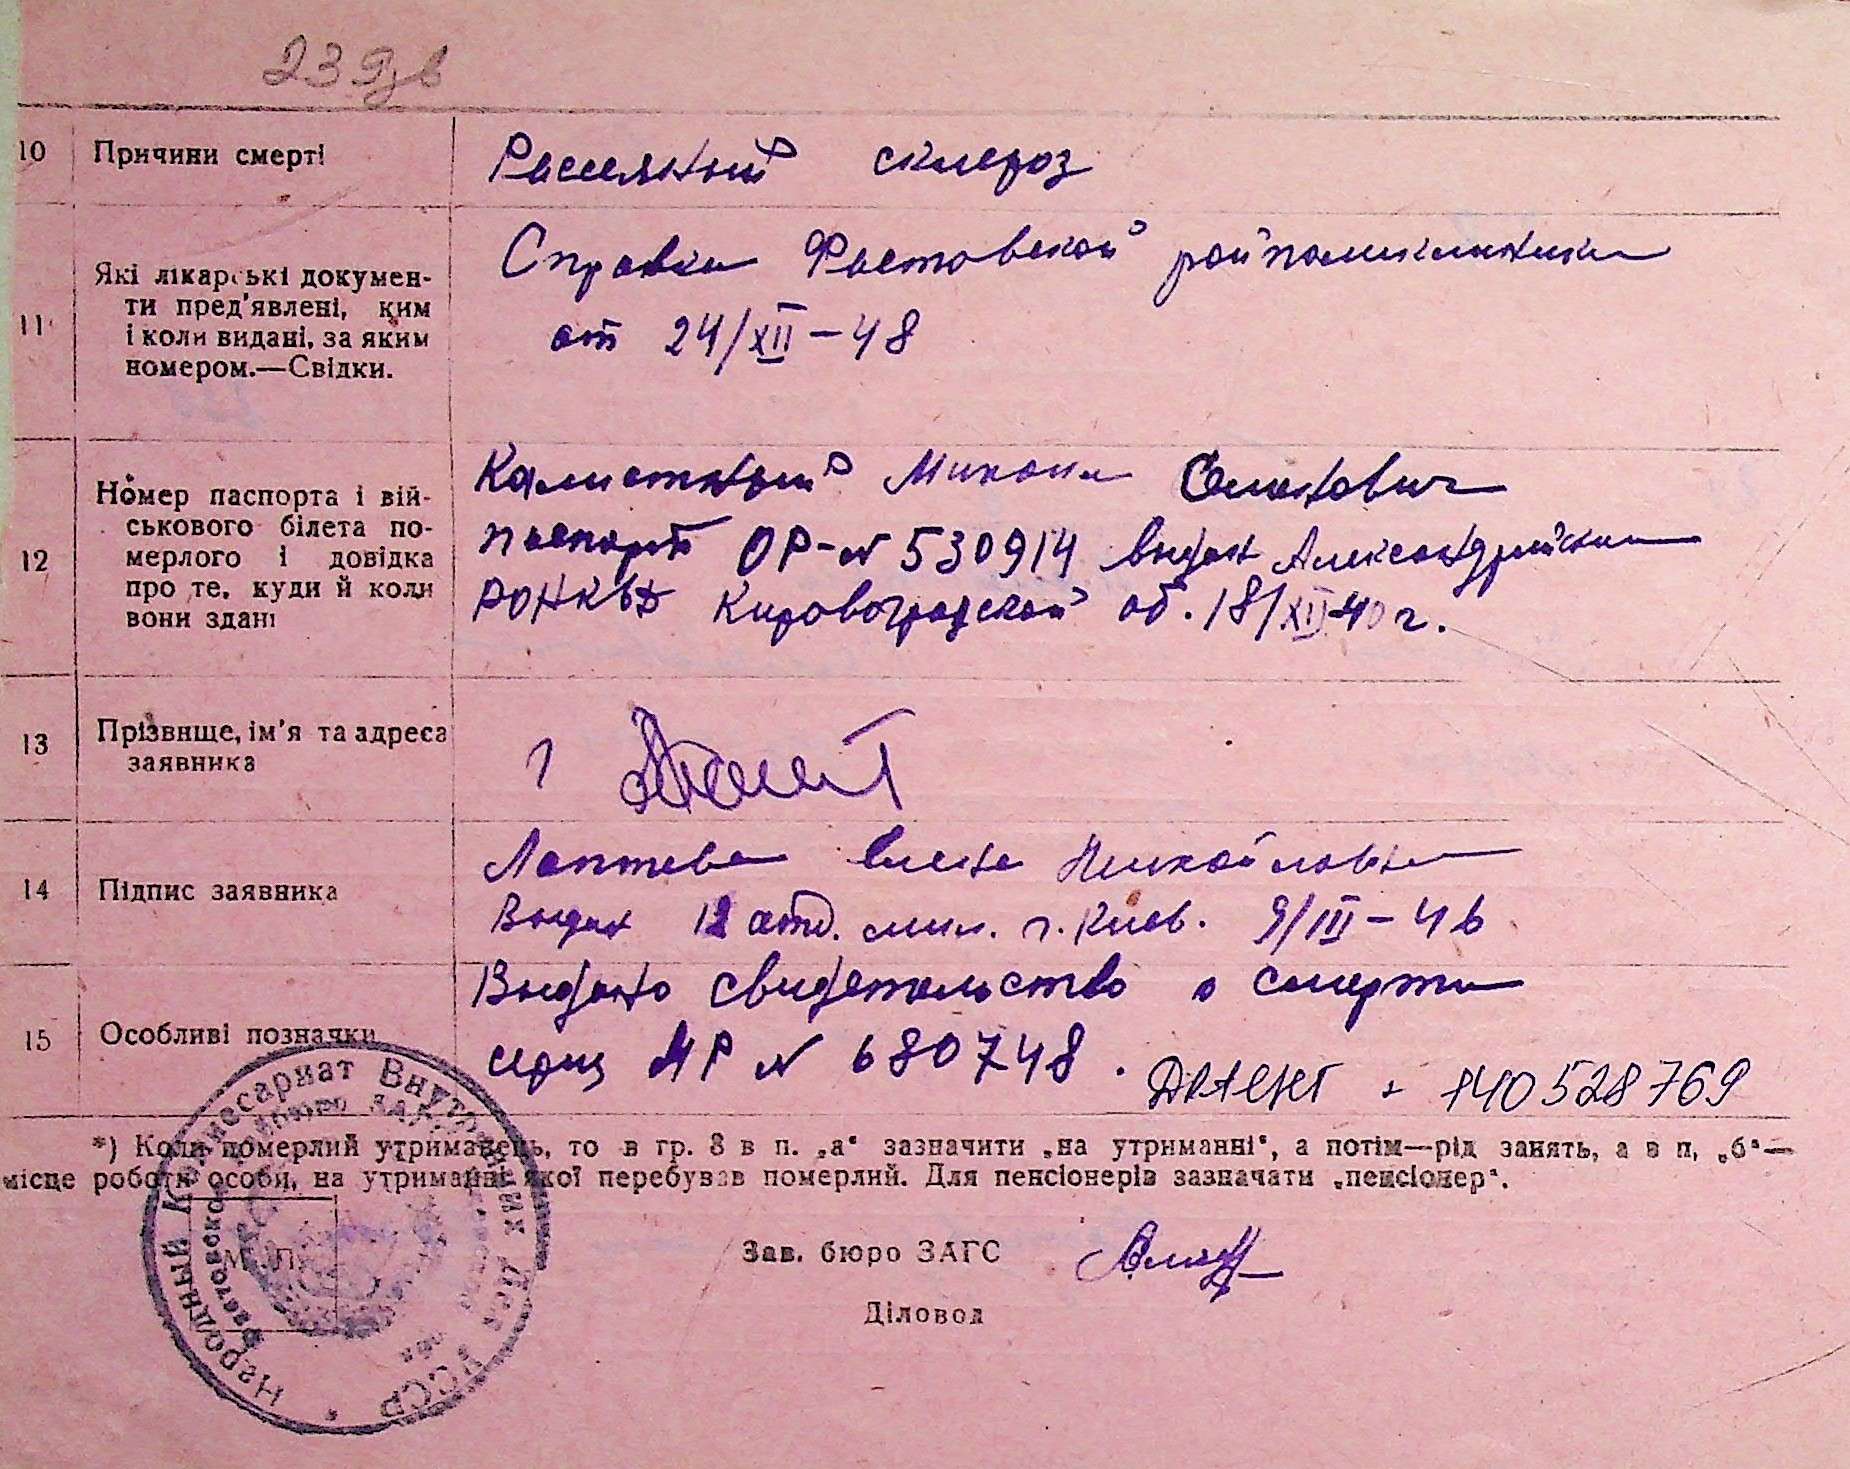 10 Причини смерті
Рассеянный склероз
11 Які лікарські докумен-
ти пред'явлені, ким
і коли видані, за яким
номером.—Свідки.
Справка Фастовской райполиклиники
от 24/XII-48
12 Номер паспорта і вій-
ськового білета по-
мерлого і довідка
про те, куди й коли
вони здані
Семенович
паспорт ОР-N 530914 выдан Александрийским
РОНКВД Кировоградской об. 18/XII-40 г.
13 Прізвище, ім'я та адреса
заявника
14 Підпис заявника
Лаптева Елена Михайловна
Выдан 12 отд. мил. г. Киев. 9/III-46
15 Особливі позначки
Выдано свидетельство о смерти
серия N 680748.
140528769
*) Коли померлий утриманець, то в гр. 8 в п. „а“ зазначити „на утриманні“, а потім—рід занять, а в п, „б“—
місце роботи особи, на утриманні якої перебував померлий. Для пенсіонерів зазначати „пенсіонер“.
Народный Комиссариат Внутренних Дел УССР
М. П.
Зав. бюро ЗАГС
Діловод